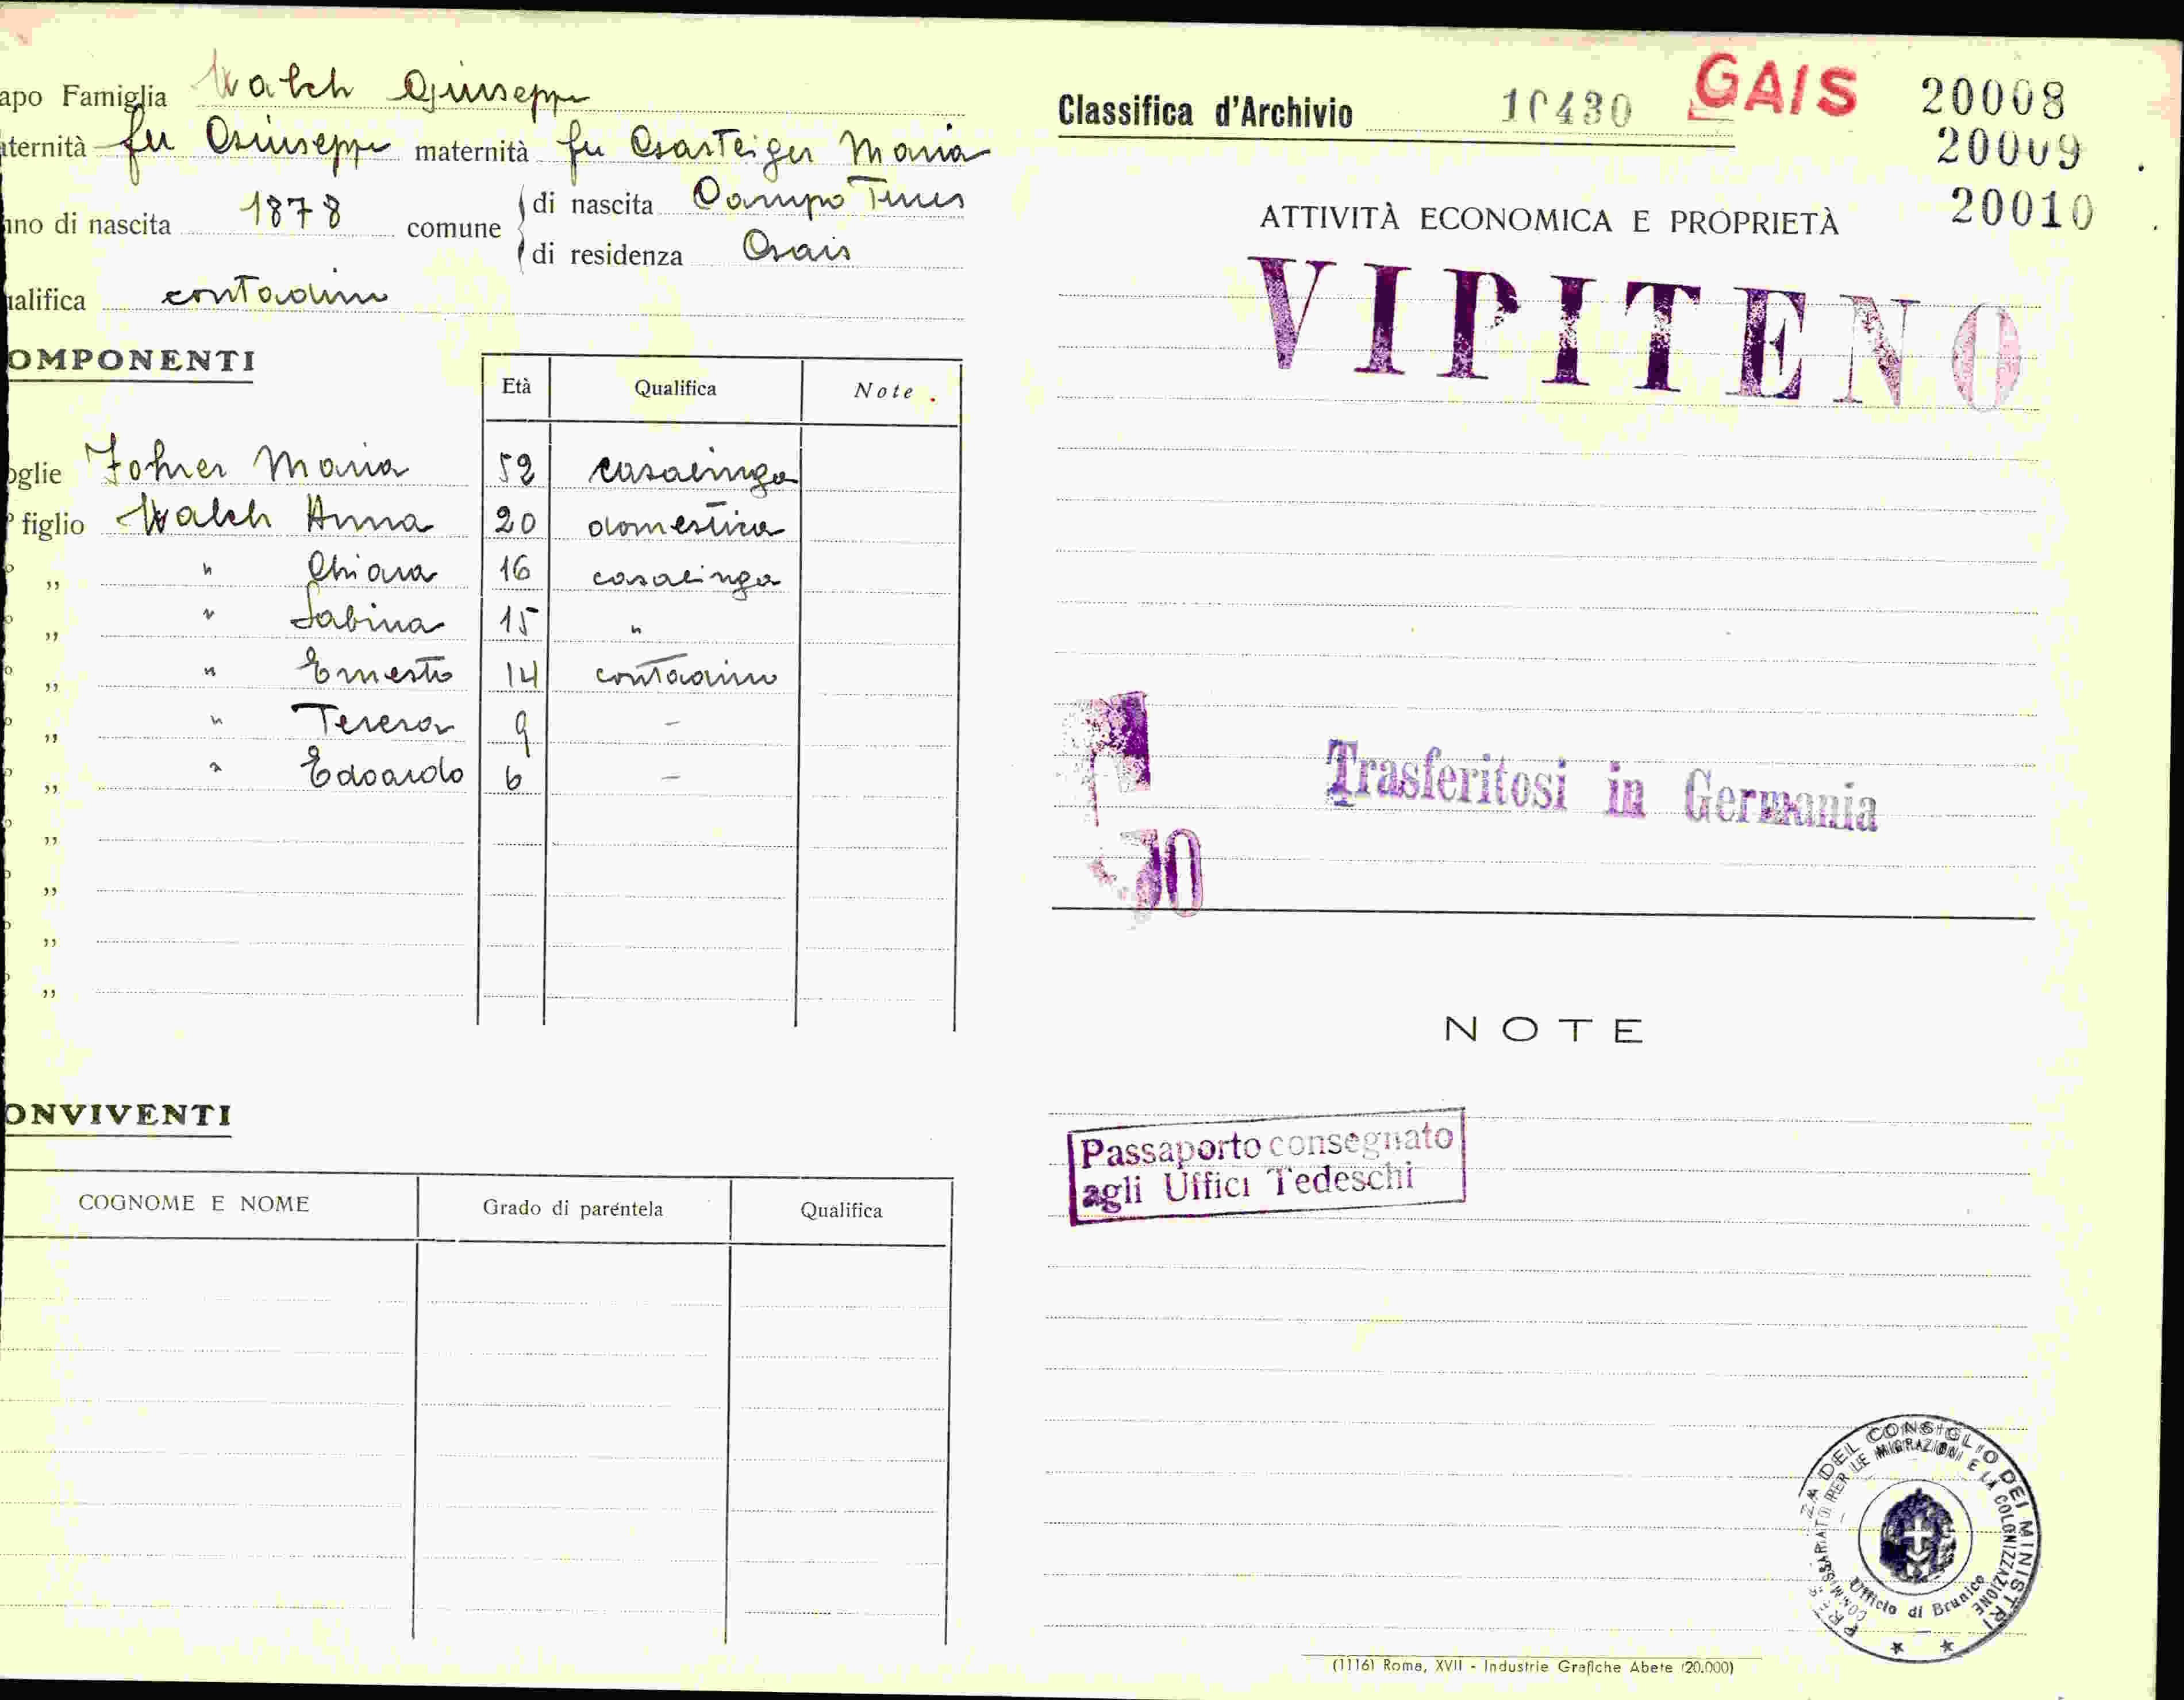 apo Famiglia Walch Giuseppe
aternità fu Giuseppe maternità fu Gasteiger Maria
nno di nascita 1878 comune di nascita Campo Tures
di residenza Gais
ualifica contadino
OMPONENTI
Età Qualifica Note
oglie Maria 52 casalinga
figlio Walch Anna 20 domestica
„ " Chiara 16 casalinga
„ " Sabina 15 "
„ " Ernesto 14 contadino
„ " Teresa 9 –
„ " Edoardo 6 –
„
„
„
„
ONVIVENTI
COGNOME E NOME Grado di parentela Qualifica
Classifica d'Archivio 10430 GAIS 20008
20009
20010
ATTIVITÀ ECONOMICA E PROPRIETÀ
VIPITENO
Trasferitosi in Germania
NOTE
Passaporto consegnato
agli Uffici Tedeschi
ZA DEL CONSIGLIO DEI MINISTRI
COMMISSARIATO PER LE MIGRAZIONI E LA COLONIZZAZIONE
Ufficio di Brunico
(1116) Roma, XVII - Industrie Grafiche Abete (20.000)